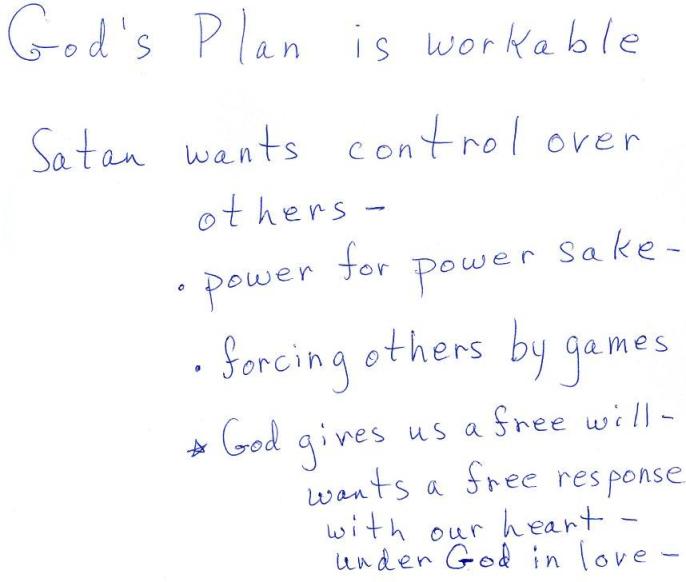 God's Plan is workable
Satan wants control over
others -
• power for power sake -
• forcing others by games
☆ God gives us a free will -
wants a free response
with our heart -
under God in love -